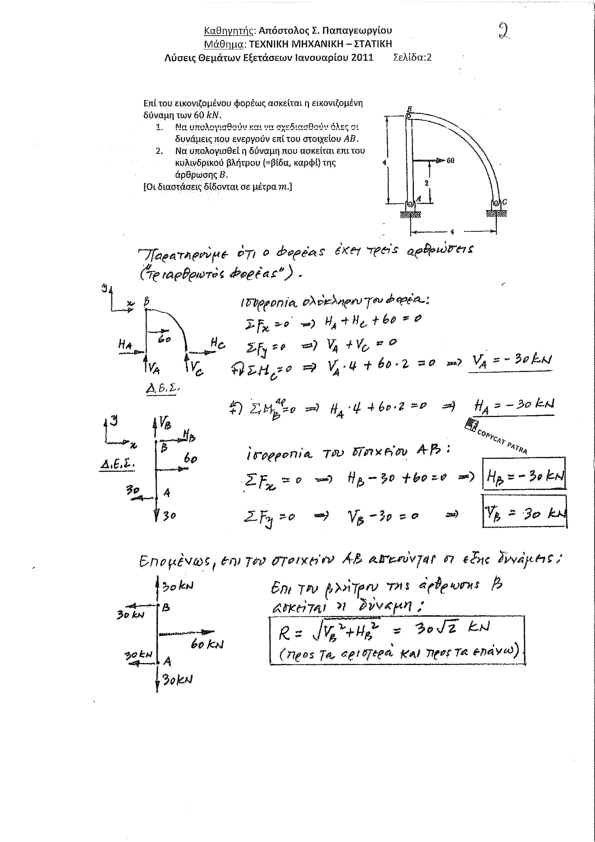 2
Καθηγητής: Απόστολος Σ. Παπαγεωργίου
Μάθημα: ΤΕΧΝΙΚΗ ΜΗΧΑΝΙΚΗ – ΣΤΑΤΙΚΗ
Λύσεις Θεμάτων Εξετάσεων Ιανουαρίου 2011 Σελίδα:2
Επί του εικονιζομένου φορέως ασκείται η εικονιζομένη
δύναμη των 60 kN.
1. Να υπολογισθούν και να σχεδιασθούν όλες οι
δυνάμεις που ενεργούν επί του στοιχείου AB.
2. Να υπολογισθεί η δύναμη που ασκείται επι του
κυλινδρικού βλήτρου (=βίδα, καρφί) της
άρθρωσης B.
[Οι διαστάσεις δίδονται σε μέτρα m.]
B
4
60
2
A
C
4
Παρατηρούμε ότι ο φορέας έχει τρείς αρθρώσεις
("τριαρθρωτός φορέας").
y
x
B
60
H_A
V_A
V_C
H_C
Δ.Ε.Σ.
ισορροπία ολόκληρου του φορέα:
ΣF_x = 0 ⇒ H_A + H_C + 60 = 0
ΣF_y = 0 ⇒ V_A + V_C = 0
ΣM_C = 0 ⇒ V_A · 4 + 60 · 2 = 0 ⇒ V_A = -30 kN
ΣM_B^αρ = 0 ⇒ H_A · 4 + 60 · 2 = 0 ⇒ H_A = -30 kN
COPYCAT PATRA
y
x
V_B
B
H_B
60
Δ.Ε.Σ.
30
A
30
ισορροπία του στοιχείου AB:
ΣF_x = 0 ⇒ H_B - 30 + 60 = 0 ⇒ H_B = -30 kN
ΣF_y = 0 ⇒ V_B - 30 = 0 ⇒ V_B = 30 kN
Επομένως, επι του στοιχείου AB ασκούνται οι εξης δυνάμεις:
30 kN
B
30 kN
60 kN
30 kN
A
30 kN
Επι του βλήτρου της άρθρωσης B
ασκείται η δύναμη:
R = √(V_B² + H_B²) = 30√2 kN
(προς τα αριστερά και προς τα επάνω).